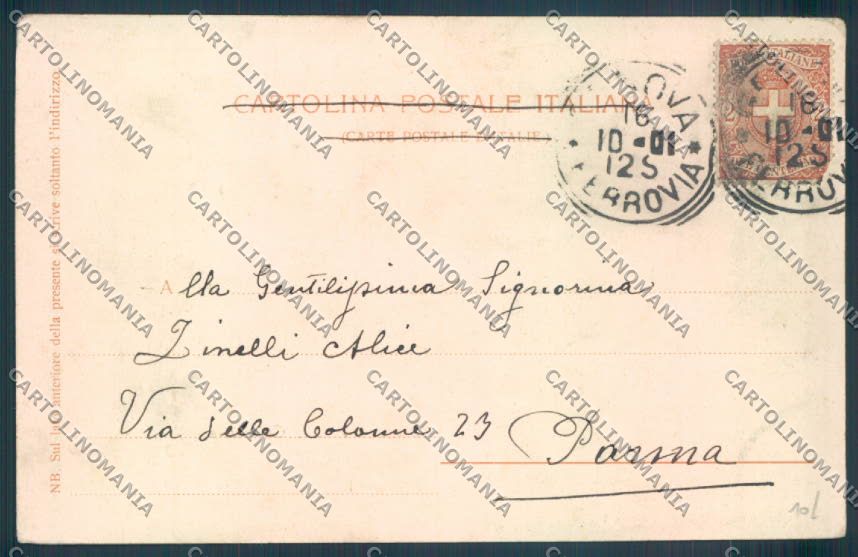 CARTOLINA POSTALE ITALIANA
(CARTE POSTALE D'ITALIE)
OVA
16
10-01
12S
* FERROVIA *
ITALIANE
16
10-01
12S
FERROV
Alla Gentilissima Signorina
Zinelli Alice
Via delle Colonne 23
Parma
NB. Sul lato anteriore della presente si scrive soltanto l'indirizzo
10/
CARTOLINOMANIA